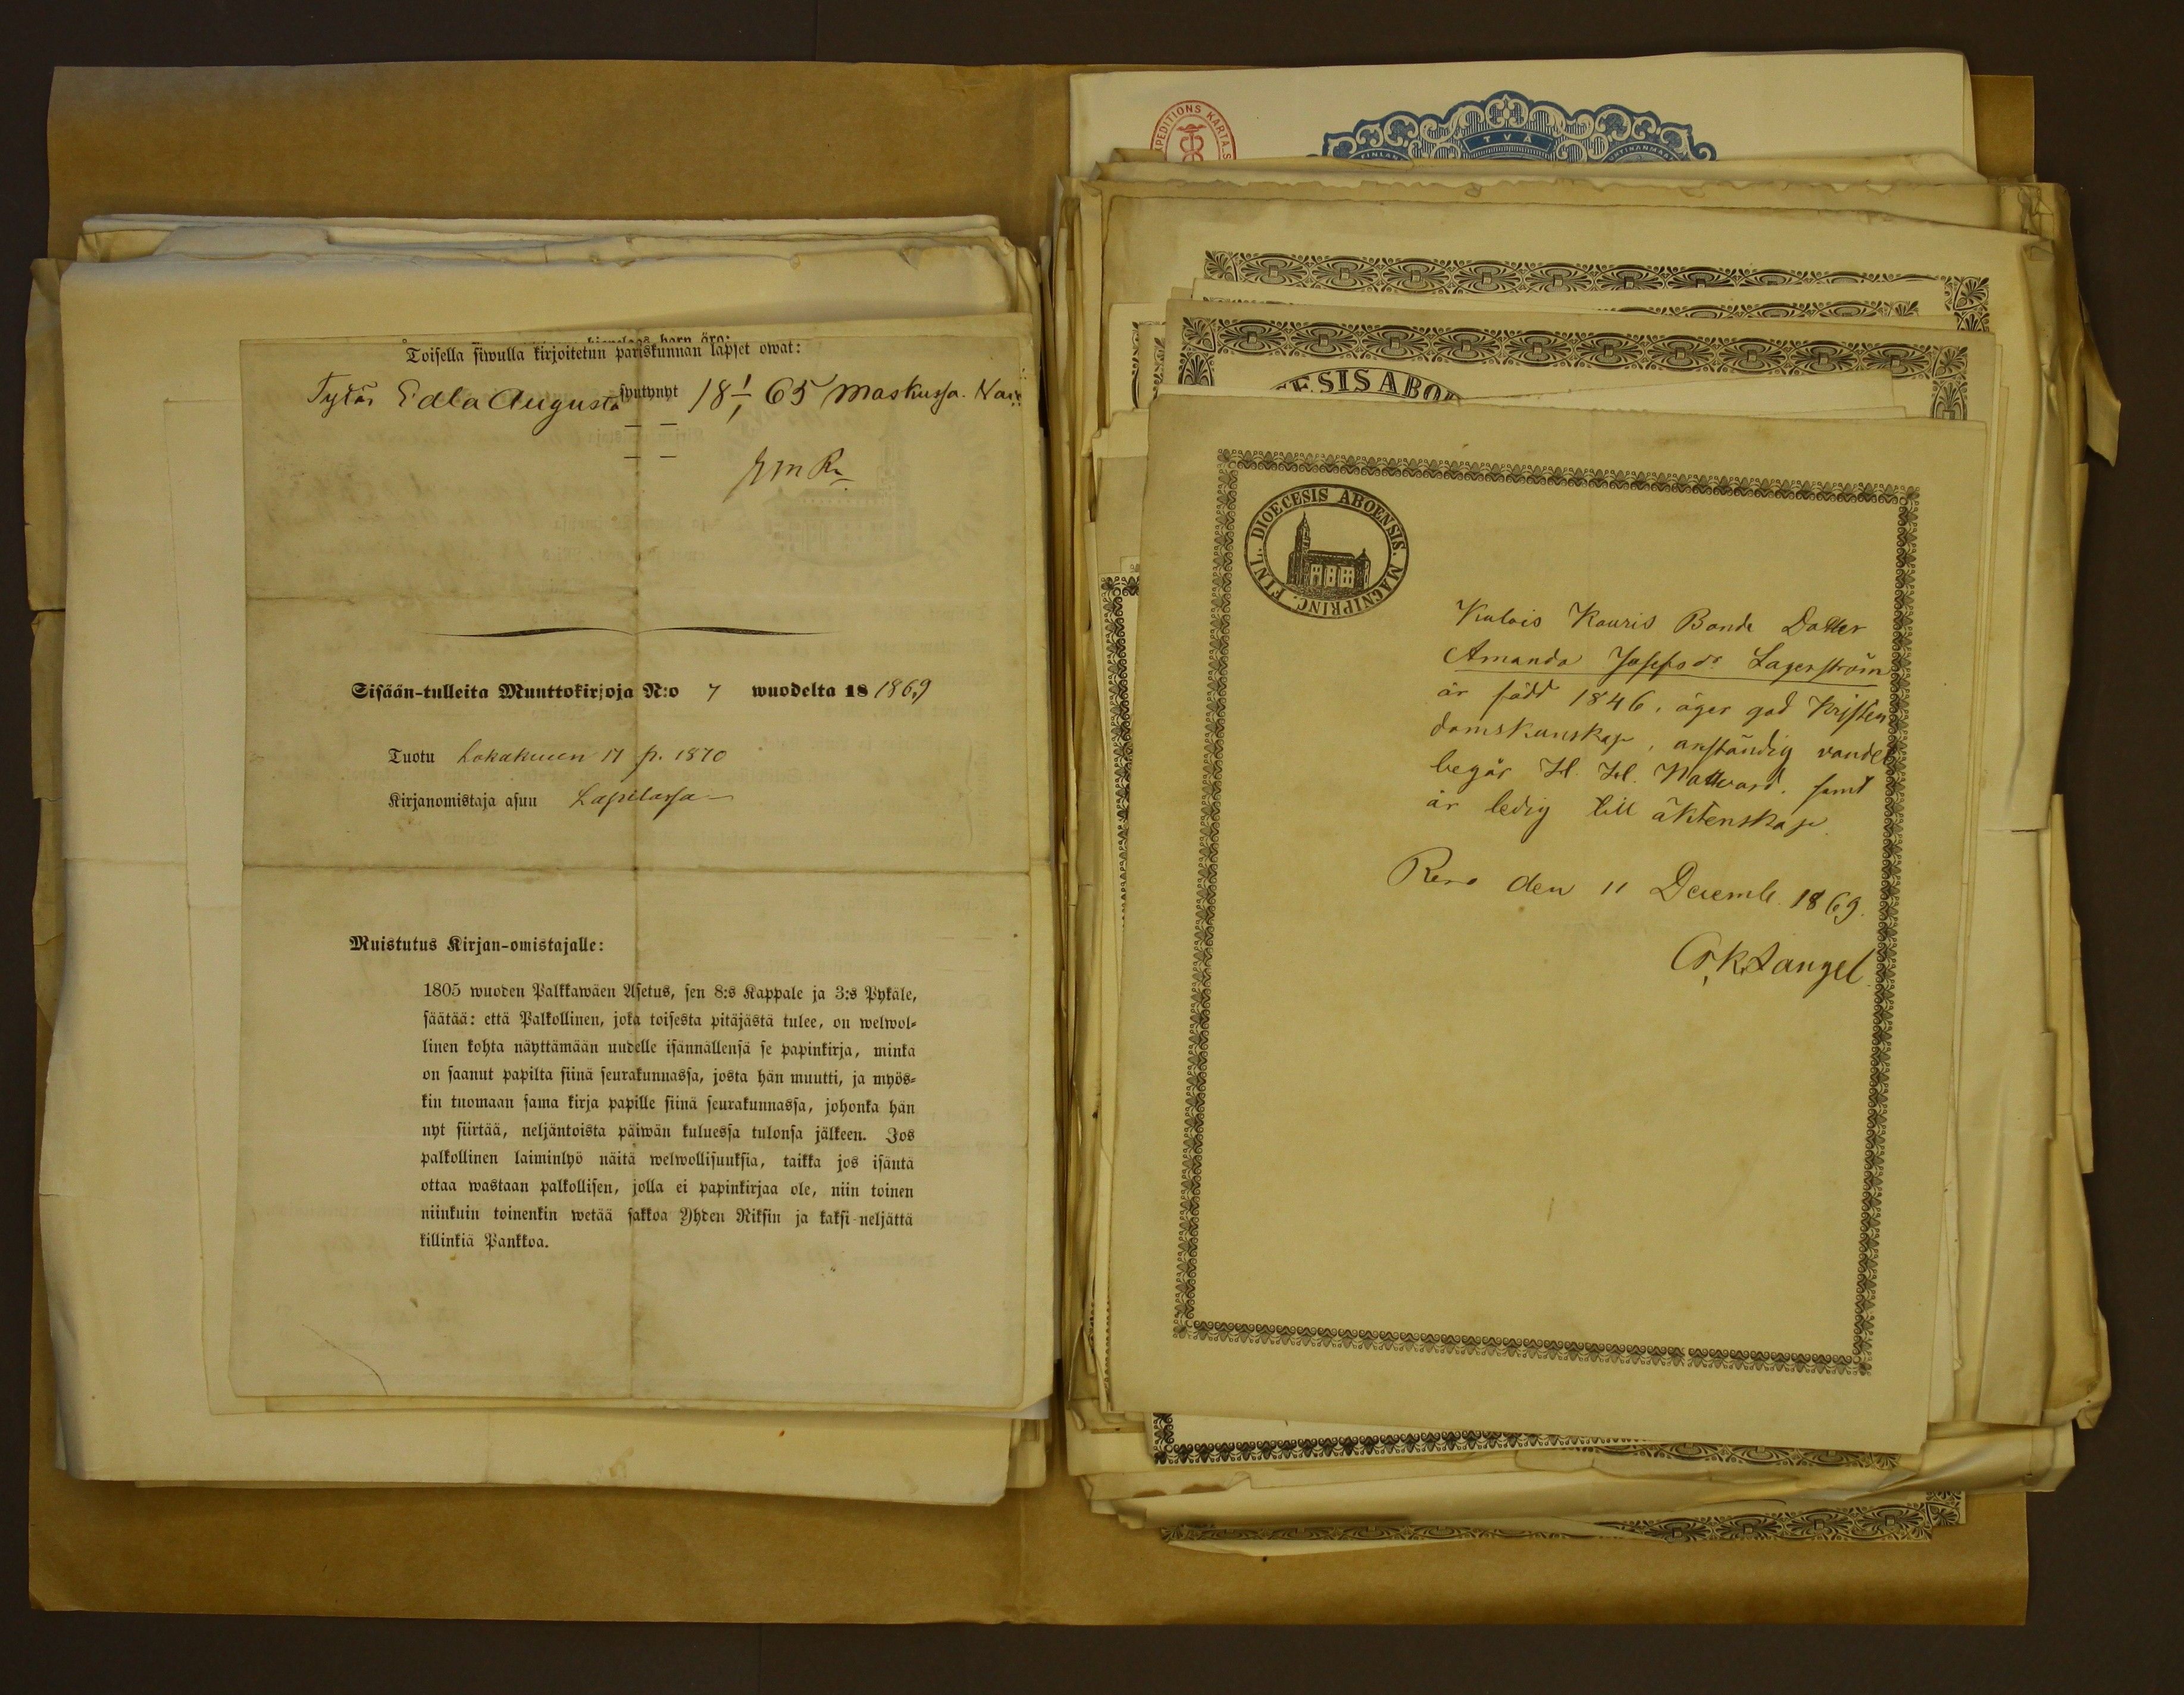 Toisella siwulla kirjoitetun pariskunnan lapset owat:
Tytär Edla Augusta syntynyt 18 1/1 65 Maskussa.
Sisään-tulleita Muuttokirjoja N:o 7 wuodelta 18 1869
Tuotu Lokakuun 17 p. 1870
Kirjanomistaja asuu Lapilassa
Muistutus Kirjan-omistajalle:
1805 wuoden Palkkawäen Asetus, sen 8:s Kappale ja 3:s Pykäle,
säätää: että Palkollinen, joka toisesta pitäjästä tulee, on welwol-
linen kohta näyttämään uudelle isännällensä se papinkirja, minkä
on saanut papilta siinä seurakunnassa, josta hän muutti, ja myös-
kin tuomaan sama kirja papille siinä seurakunnassa, johonka hän
nyt siirtää, neljäntoista päiwän kuluessa tulonsa jälkeen. Jos
palkollinen laiminlyö näitä welwollisuuksia, taikka jos isäntä
ottaa wastaan palkollisen, jolla ei papinkirjaa ole, niin toinen
niinkuin toinenkin wetää sakkoa Yhden Riksin ja kaksi-neljättä
killinkiä Pankkoa.
EXPEDITIONS KARTA. S
TVÅ
FINLAN
ESIS ABO
DIOECESIS ABOENSIS. MAGNIPRINC. FINL.
Kulois Kouris Bonde Dotter
Amanda Josefsdr Lagerström
är född 1846, äger god Kristen
domskunskap, anständig vandel
begår H. H. Nattvard. samt
är ledig till äktenskap.
Reso den 11 Decemb. 1869.